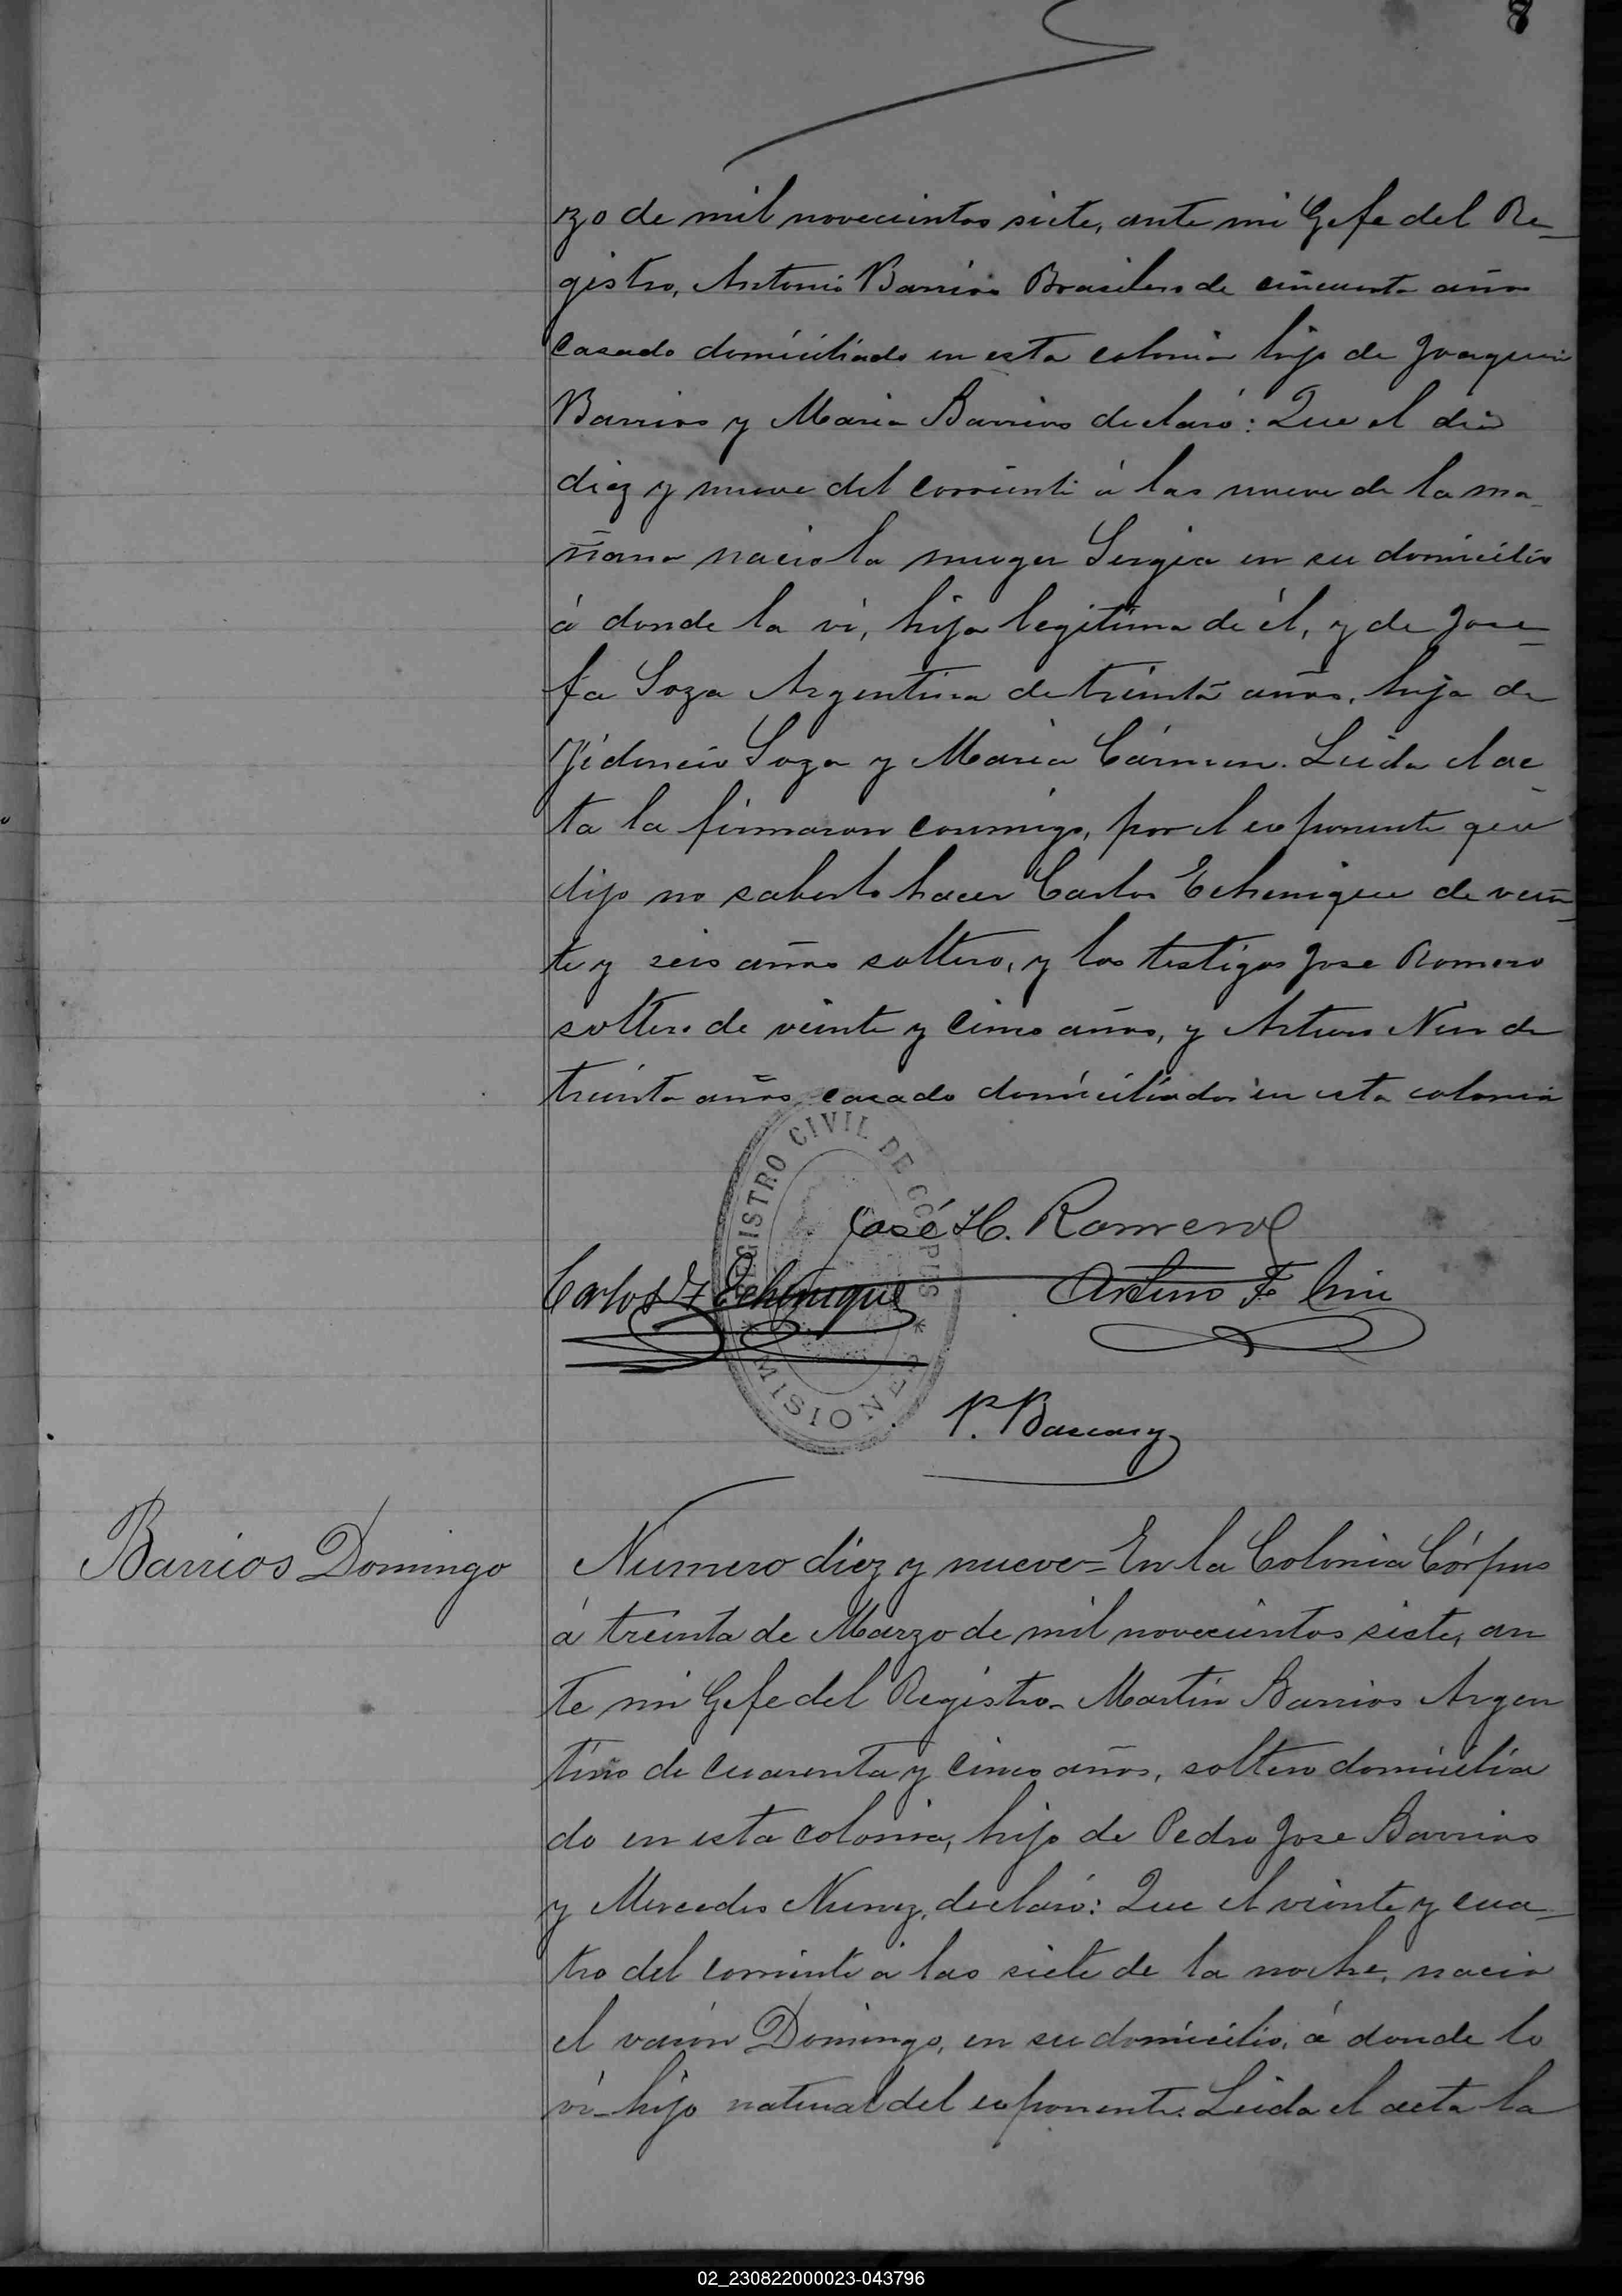 8
zo de mil novecientos siete, ante mi Gefe del Re-
gistro, Antonio Barrios Brasilero de cincuenta años
casado domiciliado en esta colonia hijo de Joaquin
Barrios y Maria Barrios declaró: Que el dia
diez y nueve del corriente á las nueve de la ma-
ñana nacio la muger Sergia en su domicilio
á donde la vi, hija legitima de él, y de Jose-
fa Soza Argentina de treinta años, hija de
Fidencio Soza y Maria Cármen. Leida el ac-
ta la firmaron conmigo, por el exponente que
dijo no saberlo hacer Carlos Echenique de vein-
te y seis años soltero, y los testigos Jose Romero
soltero de veinte y cinco años, y Arturo Nin de
treinta años casado domiciliados en esta colonia
REGISTRO CIVIL DE CORPUS
* MISIONES *
José H. Romero
Carlos Echenique
Arturo F. Nin
P.
Barrios Domingo
Numero diez y nueve = En la Colonia Córpus
á treinta de Marzo de mil novecientos siete, an
te mi Gefe del Registro - Martin Barrios Argen
tino de cuarenta y cinco años, soltero domicilia
do en esta colonia, hijo de Pedro Jose Barrios
y Mercedes Nunez, declaró: Que el veinte y cua-
tro del corriente á las siete de la noche, nacio
el varón Domingo, en su domicilio, á donde lo
vi - hijo natural del exponente. Leida el acta la
02_230822000023-043796